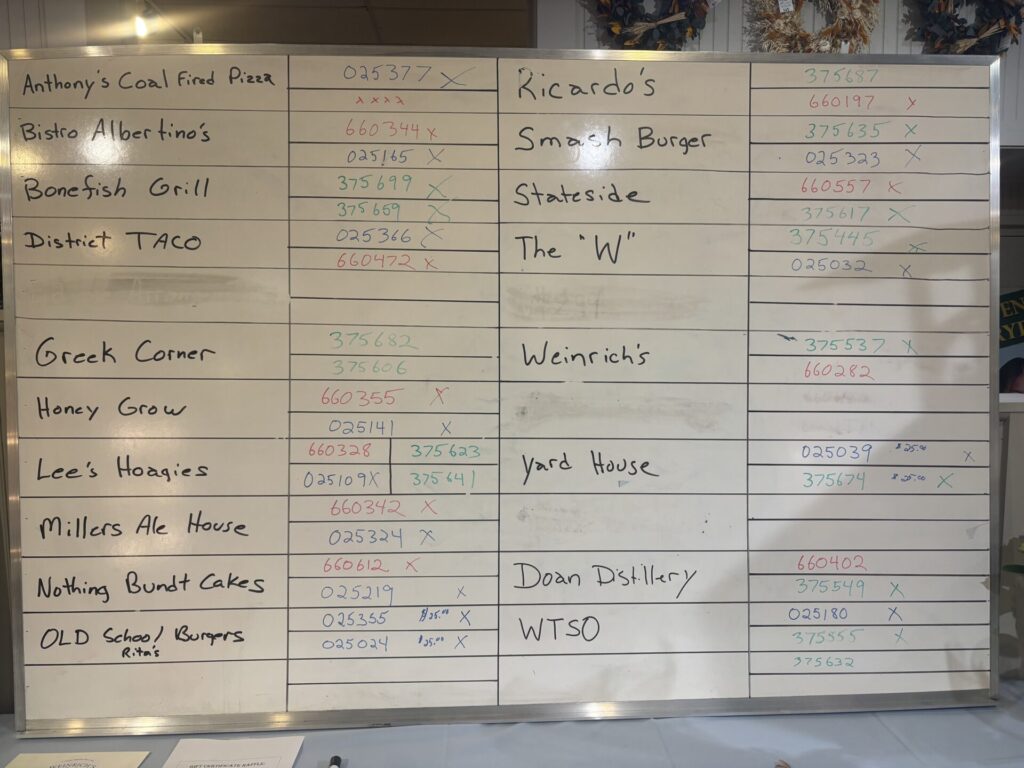 Anthony's Coal Fired Pizza
025377 X
x x x x
Bistro Albertino's
660344 x
025165 X
Bonefish Grill
375699 X
375659 X
District TACO
025366 X
660472 x
Greek Corner
375682
375606
Honey Grow
660355 X
025141 X
Lee's Hoagies
660328 375623
025109 X 375641
Millers Ale House
660342 X
025324 X
Nothing Bundt Cakes
660612 X
025219 x
OLD School Burgers
Rita's
025355 $25.00 X
025024 $25.00 X
Ricardo's
375687
660197 x
Smash Burger
375635 x
025323 X
Stateside
660557 X
375617 X
The "W"
375445 X
025032 X
Weinrich's
375537 X
660282
Yard House
025039 $25.00 X
375674 $25.00 X
Doan Distillery
660402
375549 X
WTSO
025180 X
375555 X
375632
WEINRICH'S
GIFT CERTIFICATE RAFFLE